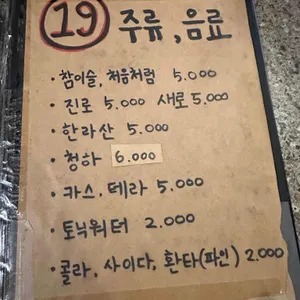 19 주류, 음료
· 참이슬, 처음처럼 5.000
· 진로 5.000 새로 5.000
· 한라산 5.000
· 청하 6.000
· 카스, 테라 5.000
· 토닉워터 2.000
· 콜라, 사이다, 환타(파인) 2.000